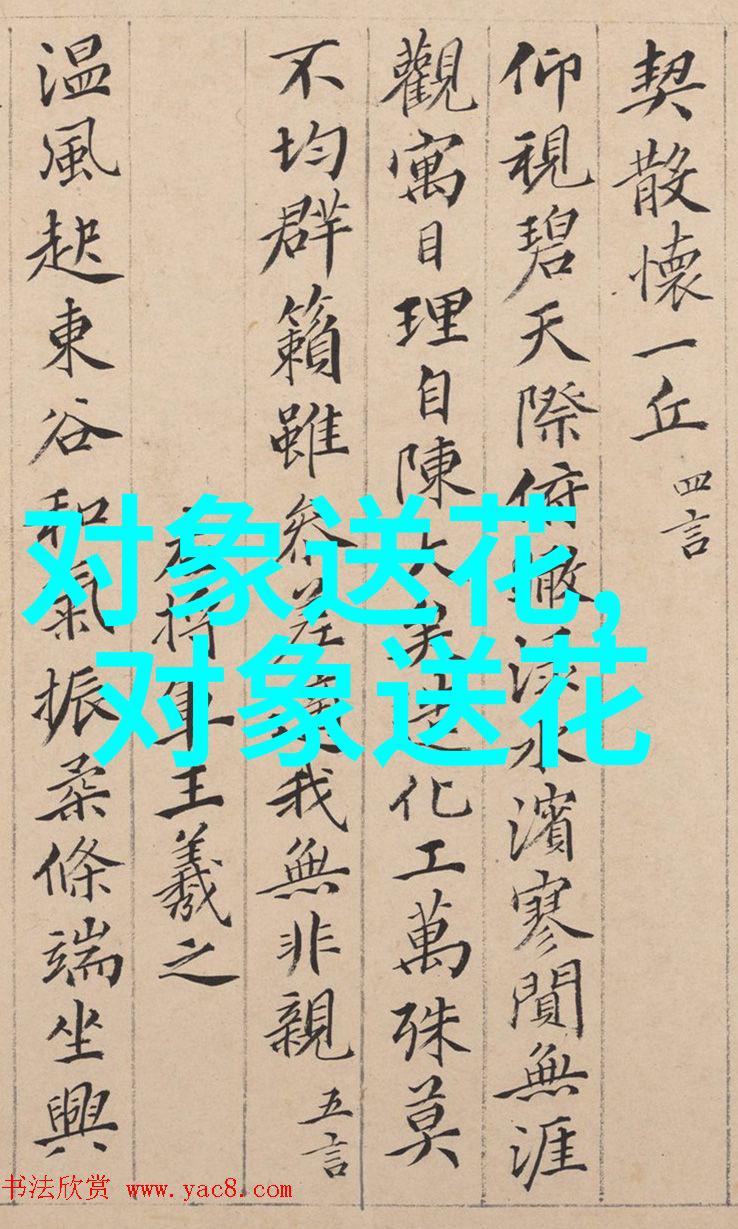 契散懷一丘 四言
仰視碧天際俯瞰渌水濱寥閴無涯
觀寓目理自陳大矣造化工萬殊莫
不均群籟雖參差適我無非親 五言
右將軍王羲之
温風起東谷和氣振柔條端坐興
对象送花,
对象送花
书法欣赏 www.yac8.com